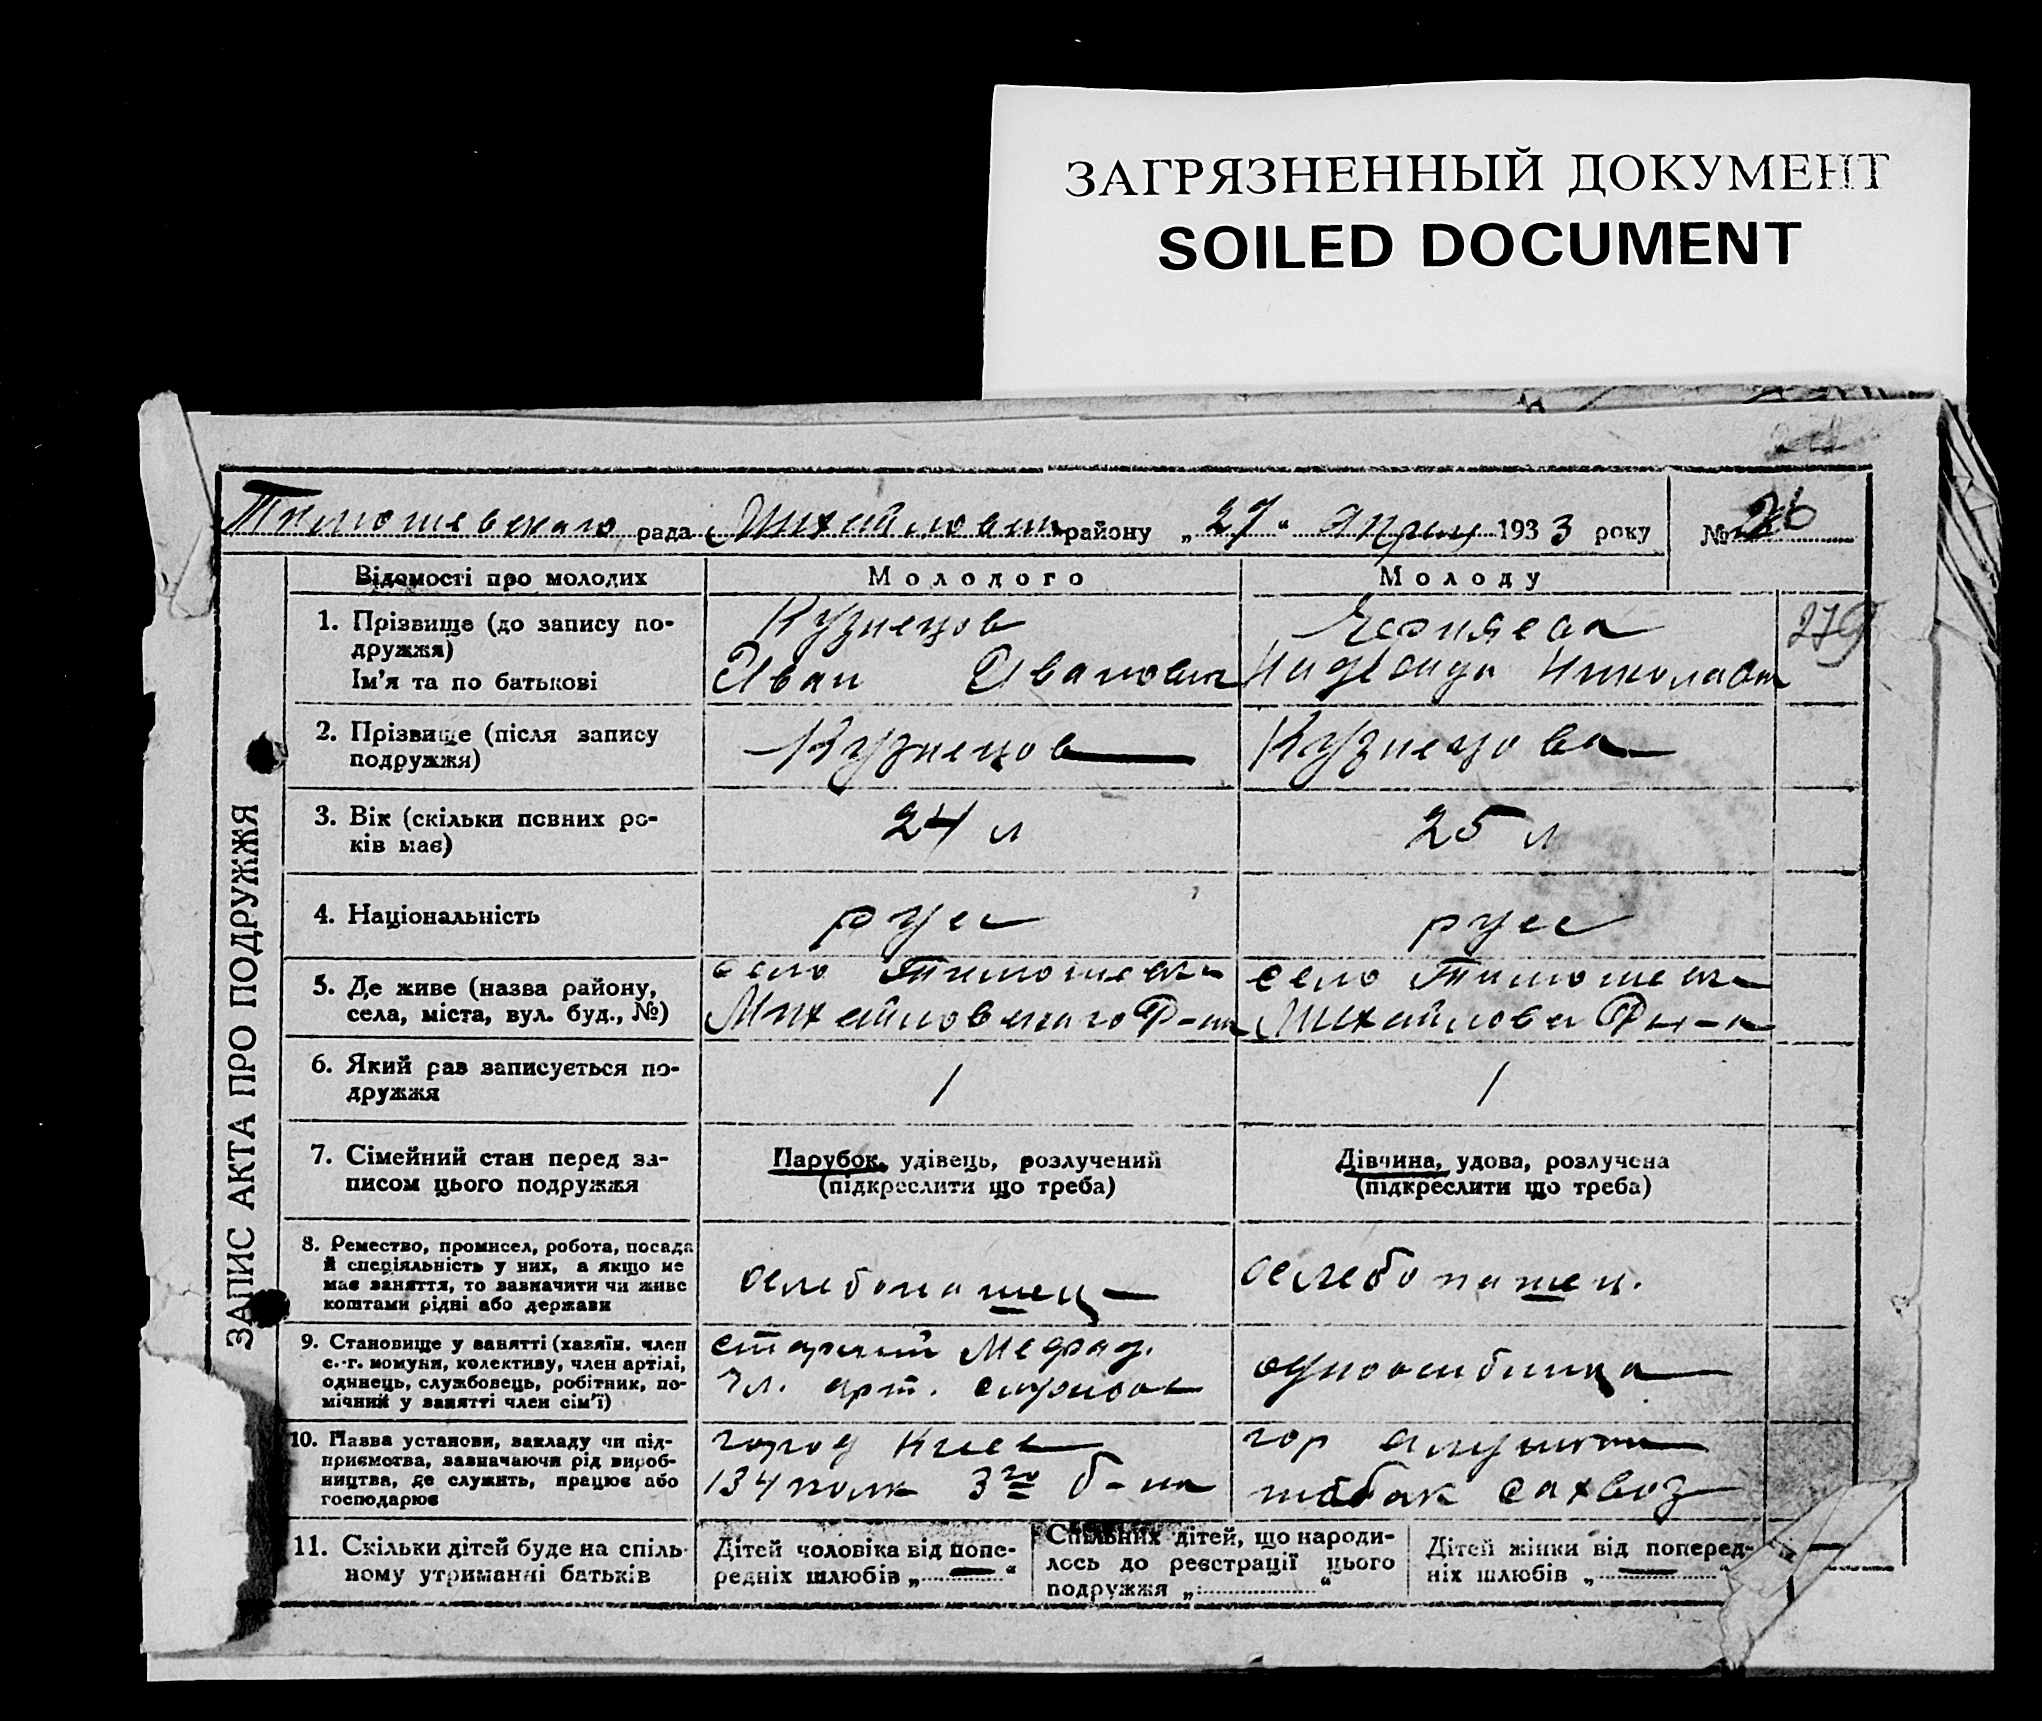 ЗАГРЯЗНЕННЫЙ ДОКУМЕНТ
SOILED DOCUMENT
Тимошевского рада Михайловск району „27“ Апреля 1933 року № 26
ЗАПИС АКТА ПРО ПОДРУЖЖЯ
Відомості про молодих
Молодого
Молоду
1. Прізвище (до запису по-
дружжя)
Ім'я та по батькові
Кузнецов
Иван Иванович
Черняева
Надежда Николаев
279
2. Прізвище (після запису
подружжя)
Кузнецов
Кузнецова
3. Вік (скільки повних ро-
ків має)
24 л
25 л
4. Національність
русс
русс
5. Де живе (назва району,
села, міста, вул. буд., №)
село Тимошевка
Михайловского Р-на
село Тимошевка
Михайловск Р-н
6. Який раз записується по-
дружжя
1
1
7. Сімейний стан перед за-
писом цього подружжя
Парубок, удівець, розлучений
(підкреслити що треба)
Дівчина, удова, розлучена
(підкреслити що треба)
8. Ремество, промисел, робота, посада
й спеціяльність у них, а якщо не
має заняття, то зазначити чи живе
коштами рідні або держави
селебопашец
селебопашец.
9. Становище у занятті (хазяїн. член
с.-г. комуни, колективу, член артілі,
одинець, службовець, робітник, по-
мічний у занятті член сім'ї)
старший
чл. арт.
одноосибника
10. Назва установи, закладу чи під-
приємства, зазначаючи рід вироб-
ництва, де служить, працює або
господарює
город Киев
134 полк 3го б-на
гор Алушта
табак сахвоз
11. Скільки дітей буде на спіль-
ному утриманні батьків
Дітей чоловіка від попе-
редніх шлюбів „—“
Спільних дітей, що народи-
лось до реєстрації цього
подружжя „ “
Дітей жінки від поперед-
ніх шлюбів „—“